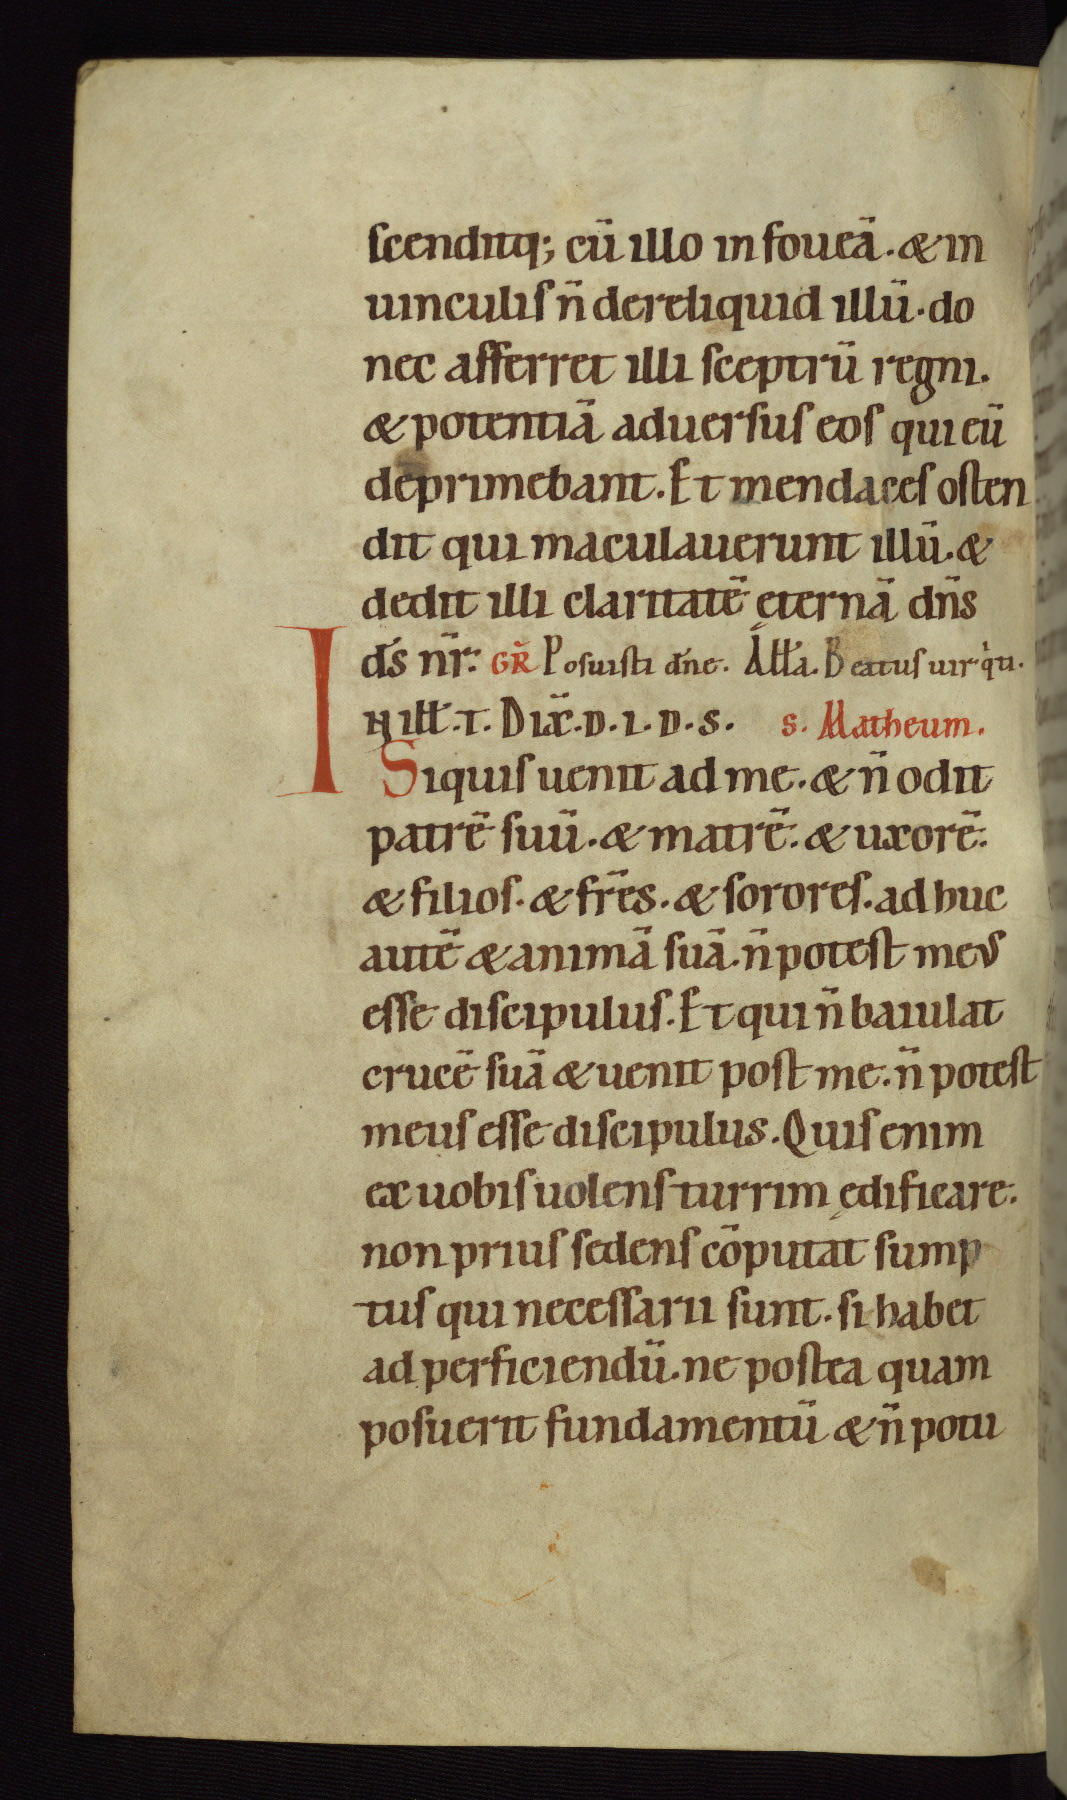 scenditq; cū illo in foueā. & in
uinculis n̄ dereliquid illū. do
nec afferret illi sceptrū regni.
& potentiā aduersus eos qui eū
deprimebant. Et mendaces osten
dit qui maculauerunt illū. &
dedit illi claritatē ęternā dn̄s
ds̄ nr̄. GR̄ Posuisti dn̄e. All̄a. Beatus uir qͥ ti.
IN ill̄. T. Dix̄. D. I. D. S. S. Matheum.
Siquis uenit ad me. & n̄ odit
patrē suū. & matrē. & uxorē.
& filios. & fr̄es. & sorores. ad huc
autē & animā suā. n̄ potest meus
esse discipulus. Et qui n̄ baiulat
crucē suā & uenit post me. n̄ potest
meus esse discipulus. Quis enim
ex uobis uolens turrim ędificare.
non prius sedens cōputat sump
tus qui necessarii sunt. si habet
ad perficiendū. ne postea quam
posuerit fundamentū & n̄ potu